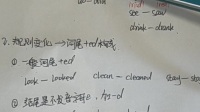 see — saw
drink — drank
2. 规则变化 → 词尾+ed
① 一般 词尾+ed
look — looked clean — cleaned stay — stay
② 结尾是不发音的e, 加-d